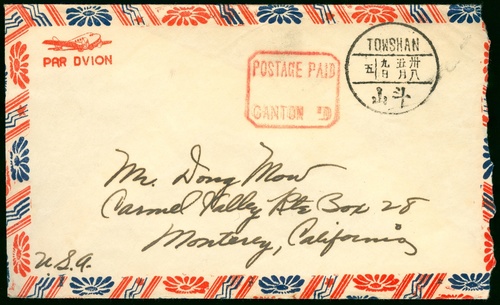 PAR DVION
POSTAGE PAID
CANTON
TOWSHAN
五 九日 五月 卅八
斗山
Mr. Dong Mow
Carmel Valley Rte Box 28
Monterey, California
U.S.A.